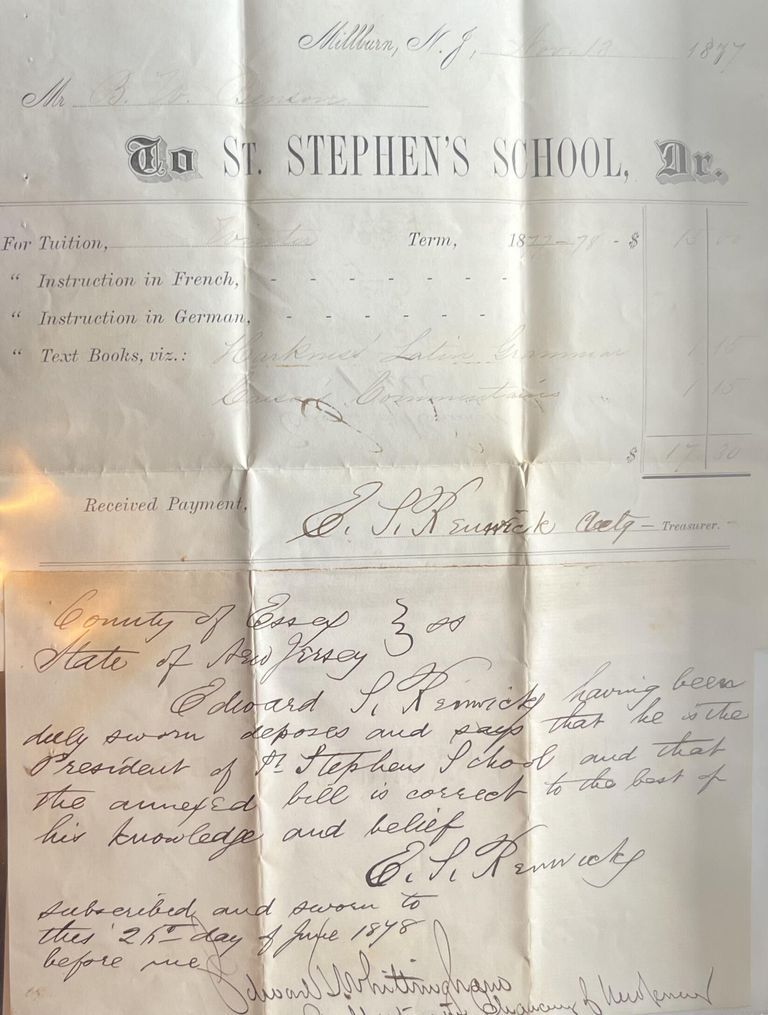 Millburn, N. J., Nov. 13 1877
Mr B. W. Benson
To ST. STEPHEN'S SCHOOL, Dr.
For Tuition, Winter Term, 1877-78 - $ 15 00
" Instruction in French, - - - - - - -
" Instruction in German, - - - - - -
" Text Books, viz.: Harkness' Latin Grammar 1 15
Caesar's Commentaries " 1 15
$ 17 30
Received Payment, E. S. Renwick Actg - Treasurer.
County of Essex } ss
State of New Jersey
Edward S. Renwick having been
duly sworn deposes and says that he is the
President of St Stephens School and that
the annexed bill is correct to the best of
his knowledge and belief
E. S. Renwick
subscribed and sworn to
this day of June 1878
before me
Edward M. Whittingham
Chancery of New Jersey